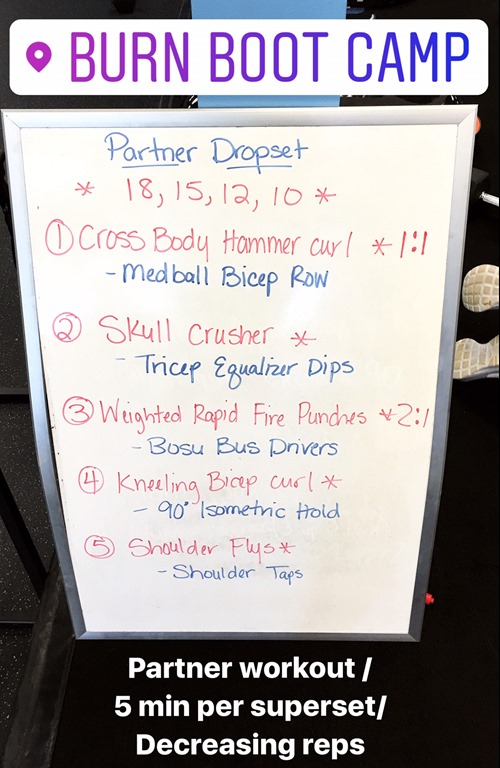 BURN BOOT CAMP
Partner Dropset
* 18, 15, 12, 10 *
① Cross Body Hammer curl * 1:1
- Medball Bicep Row
② Skull Crusher *
- Tricep Equalizer Dips
③ Weighted Rapid Fire Punches * 2:1
- Bosu Bus Drivers
④ Kneeling Bicep curl *
- 90° Isometric Hold
⑤ Shoulder Flys *
- Shoulder Taps
Partner workout /
5 min per superset/
Decreasing reps